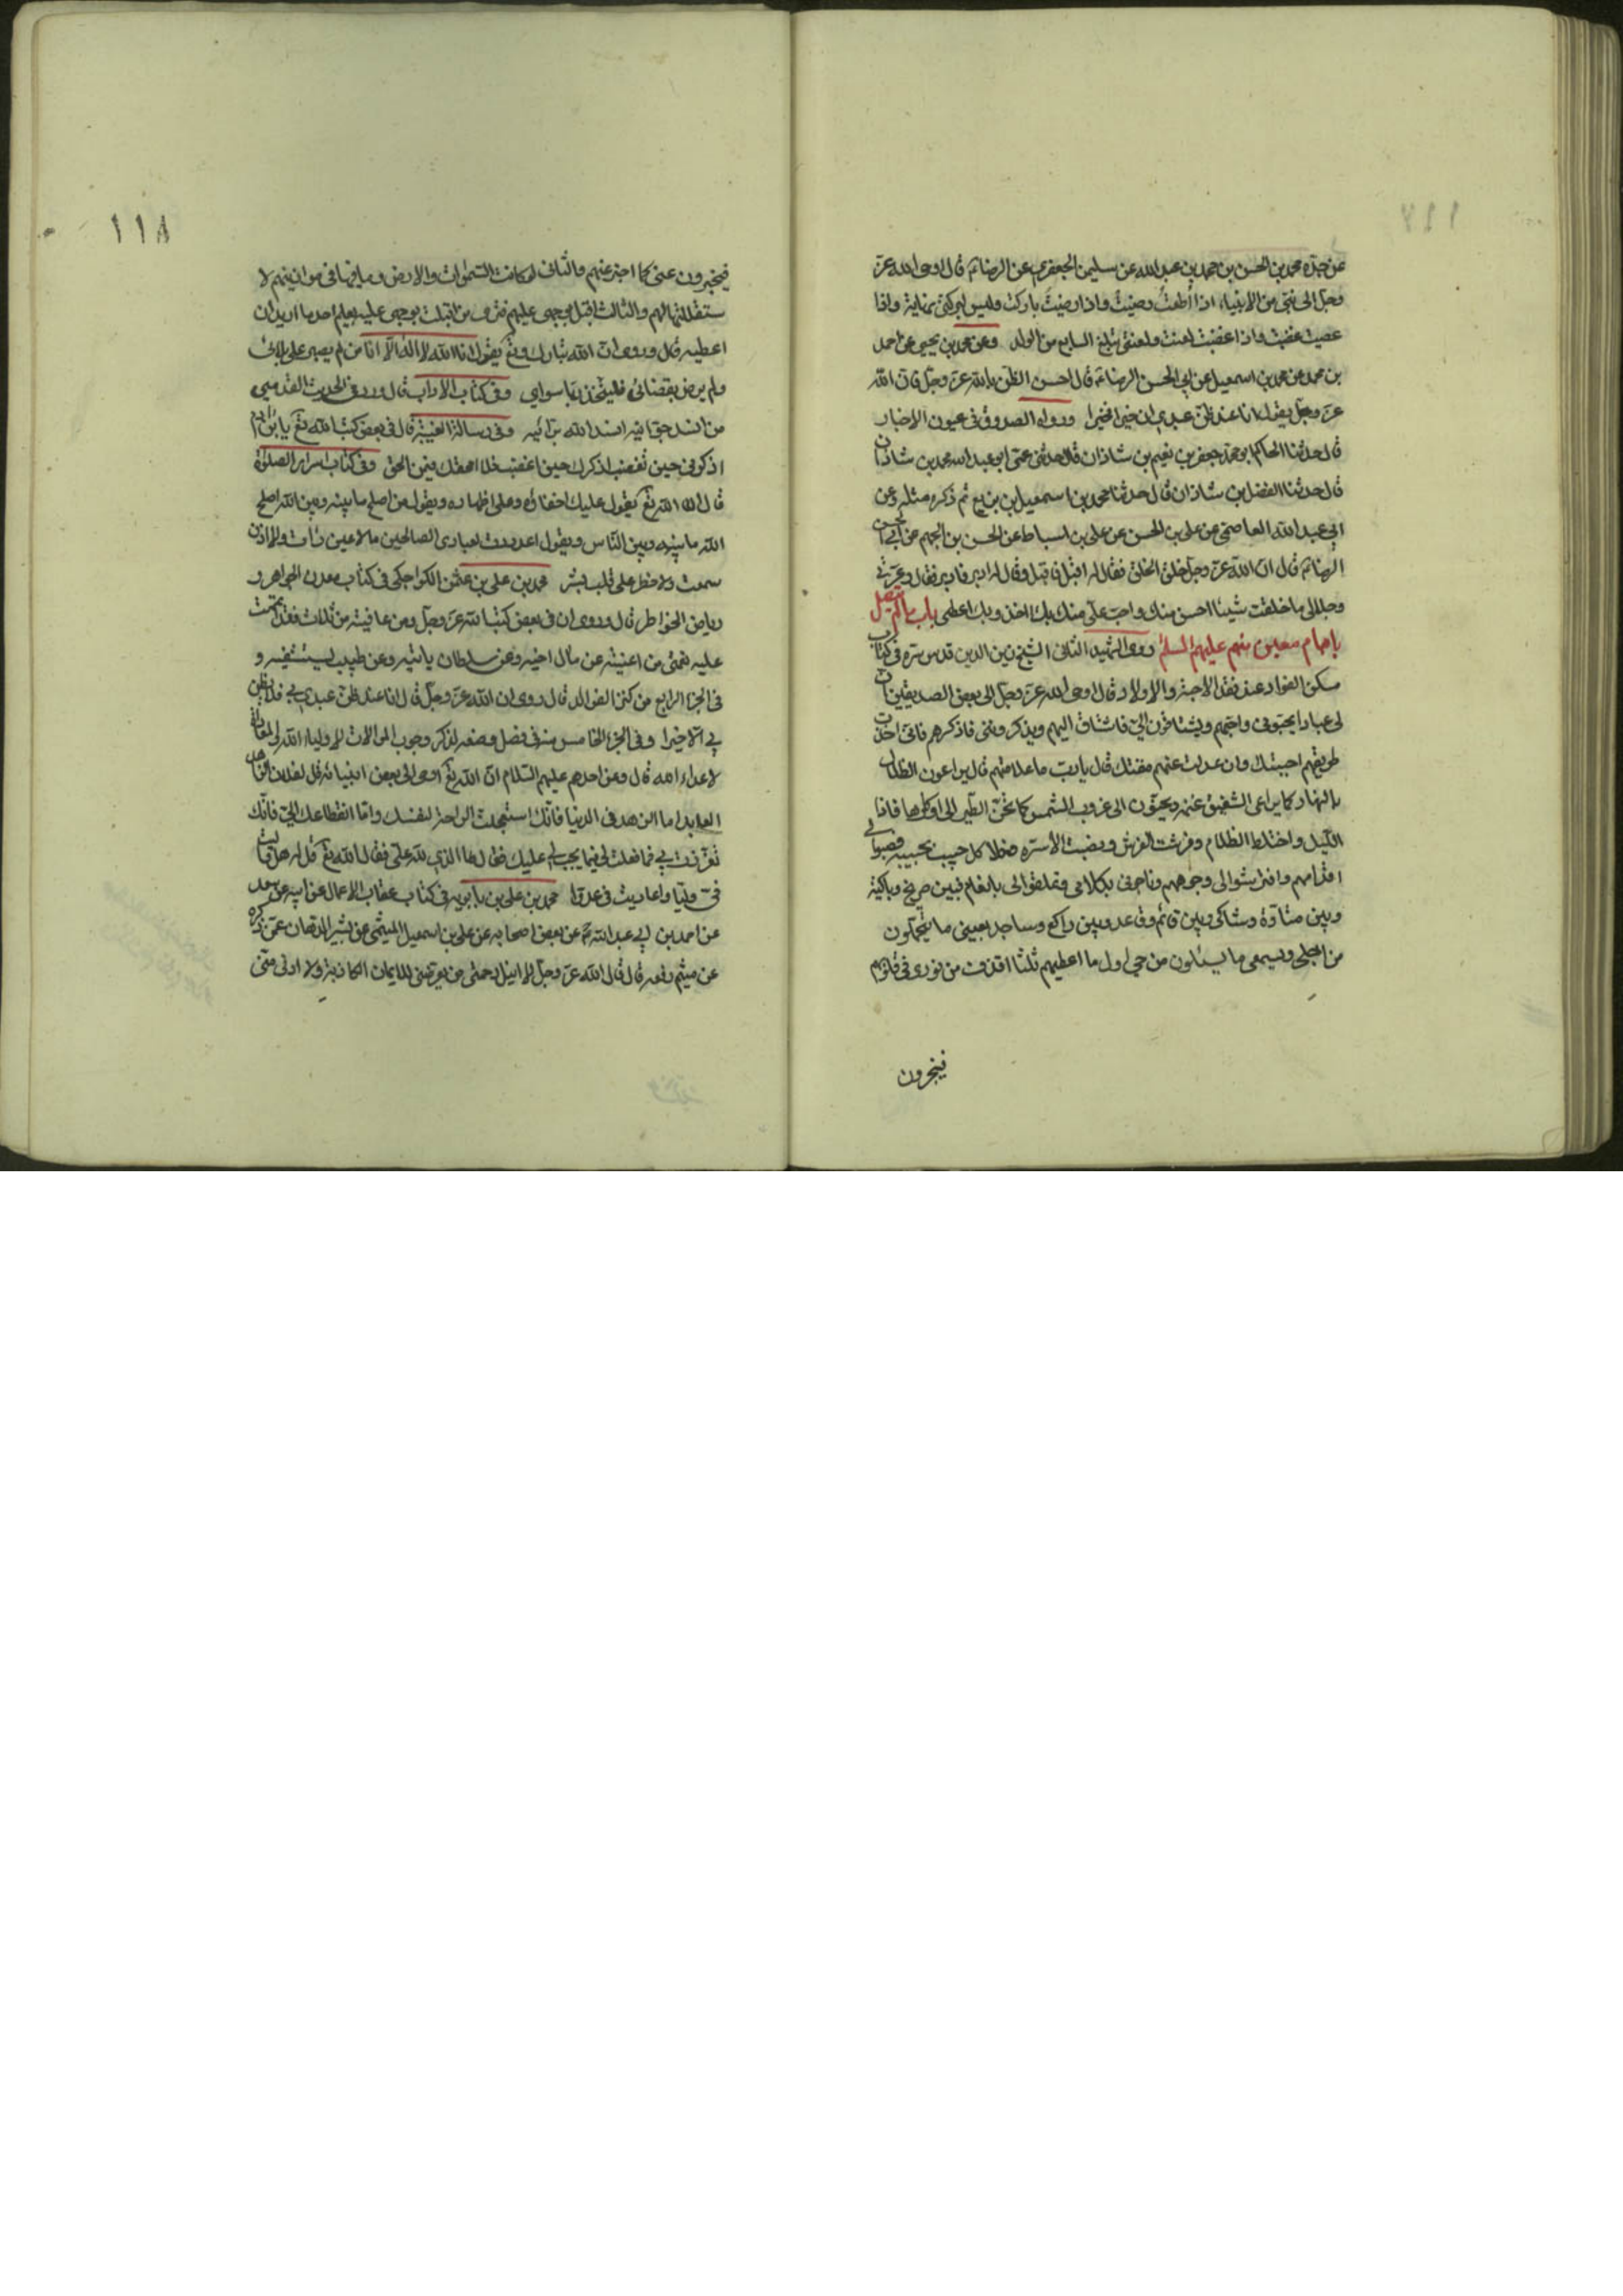 عن جده محمد بن الحسن بن محمد بن عبد الله عن سليمن الجعفري عن الرضا ع قال اوحى الله عز
وجل الى نبي من الانبياء اذا أطعتُ رضيتُ واذا رضيتُ باركت وليس لبركتي نهاية واذا
عصيت غضبت واذا غضبت لعنت ولعنتي تبلغ السابع من الولد وعن محمد بن يحيى عن احمد
بن محمد عن محمد بن اسمعيل عن ابي الحسن الرضا ع قال احسن الظن بالله عز وجل فان الله
عز وجل يقول انا عند ظن عبدي ان خيرا فخيرا ورواه الصدوق في عيون الاخبار
قال حدثنا الحاكم ابو محمد جعفر بن نعيم بن شاذان قال حدثني عمي ابو عبد الله محمد بن شاذان
قال حدثنا الفضل بن شاذان قال حدثنا محمد بن اسمعيل بن بزيع ثم ذكر مثله وعن
ابي عبد الله العاصمي عن علي بن الحسن عن علي بن اسباط عن الحسن بن الجهم عن ابي الحسن
الرضا ع قال ان الله عز وجل خلق الخلق فقال له اقبل فاقبل وقال له ادبر فادبر فقال وعزتي
وجلالي ما خلقت شيئا احسن منك واحب علي منك بك اخذ وبك اعطي باب ما لم يتصل
بامام معين منهم عليهم السلم روى الشهيد الثاني الشيخ زين الدين قدس سره في كتاب
مسكن الفواد عند فقد الاحبة والاولاد قال اوحى الله عز وجل الى بعض الصديقين ان
لي عبادا يحبوني واحبهم ويشتاقون الي فاشتاق اليهم ويذكرونني فاذكرهم فان اخذت
طريقهم احببتك وان عدلت عنهم مقتك قال يا رب ما علامتهم قال يراعون الظلال
بالنهار كما يراعي الشفيق غنمه ويحنون الى غروب الشمس كما تحن الطير الى اوكارها فاذا
الليل واختلط الظلام وفرشت الفرش ونصبت الأسره وخلا كل حبيب بحبيبه نصبوا لي
اقدامهم وافترشوا لي وجوههم وناجوني بكلامي وتملقوا لي بانعامي فبين صريخ وباكية
وبين متأوه وشاكي وبين قائم وقاعد وبين راكع وساجد بعيني ما يتحملون
من اجلي وبسمعي ما يسئلون من حبي اول ما اعطيهم ثلثا اقذف من نوري في قلوبهم
فيخبرون
١١٨
فيخبرون عني كما اخبر عنهم والثاني لو كانت السموات والارض وما فيها في موازينهم لا
ستقللتها لهم والثالث اقبل بوجهي عليهم فترى من اقبلت بوجهي عليه يعلم احد ما اريد ان
اعطيه قال وروى ان الله تبارك وتع يقول انا الله لا اله الا انا من لم يصبر على بلائي
ولم يرض بقضائي فليتخذ ربا سواي وفي كتاب الاداب قال ورد في الحديث القدسي
من افسد جوانيه افسد الله برانيه وفي رسالة الغيبة قال في بعض كتب الله تع يا بن ادم
اذكرني حين تغضب اذكرك حين اغضب فلا امحقك فيمن امحق وفي كتاب اسرار الصلوة
قال الله تع يقول عليك اخفاؤه وعلي اظهاره ويقول من اصلح ما بينه وبين الله اصلح
الله ما بينه وبين الناس ويقول اعددت لعبادي الصالحين ما لا عين رات ولا اذن
سمعت ولا خطر على قلب بشر محمد بن علي بن عثمن الكراجكي في كتاب معدن الجواهر و
رياض الخواطر قال وروى ان في بعض كتب الله عز وجل ومن عافيته من ثلاث فقد تمت
عليه نعمتي من اغنيته عن مال اخيه وعن سلطان ياتيه وعن طبيب يستشفيه و
في الجزء الرابع من كنز الفوائد قال روى ان الله عز وجل قال انا عند ظن عبدي بي فلا يظن
بي الا خيرا وفي الجزء الخامس منه في فصل وضعه لذكر وجوب الموالات لاولياء الله والمعادات
لاعداء الله قال وعن احدهم عليهم السلام ان الله تع اوحى الى بعض انبيائه قل لفلان الزاهد
العابد اما الزهد في الدنيا فانك استعجلت الراحة لنفسك واما انقطاعك الي فانك
تعززت بي فما فعلت لي فيما يجب لي عليك فقال لها الذي لله علي فقال الله تع قل له هل واليت
في وليا وعاديت في عدوا محمد بن علي بن بابويه في كتاب عقاب الاعمال عن ابيه عن سعد
عن احمد بن ابي عبد الله عن بعض اصحابه عن علي بن اسمعيل الميثمي عن بشير الدهان عمن ذكره
عن ميثم رفعه قال قال الله عز وجل لا انيل رحمتي من يعرضني للايمان الكاذبة ولا ادني مني